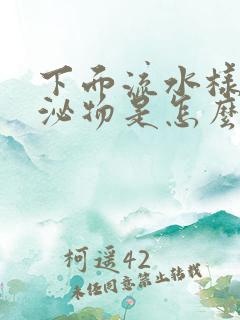 下而流水样
泌物是怎麽
柯遥42
未经同意禁止转载